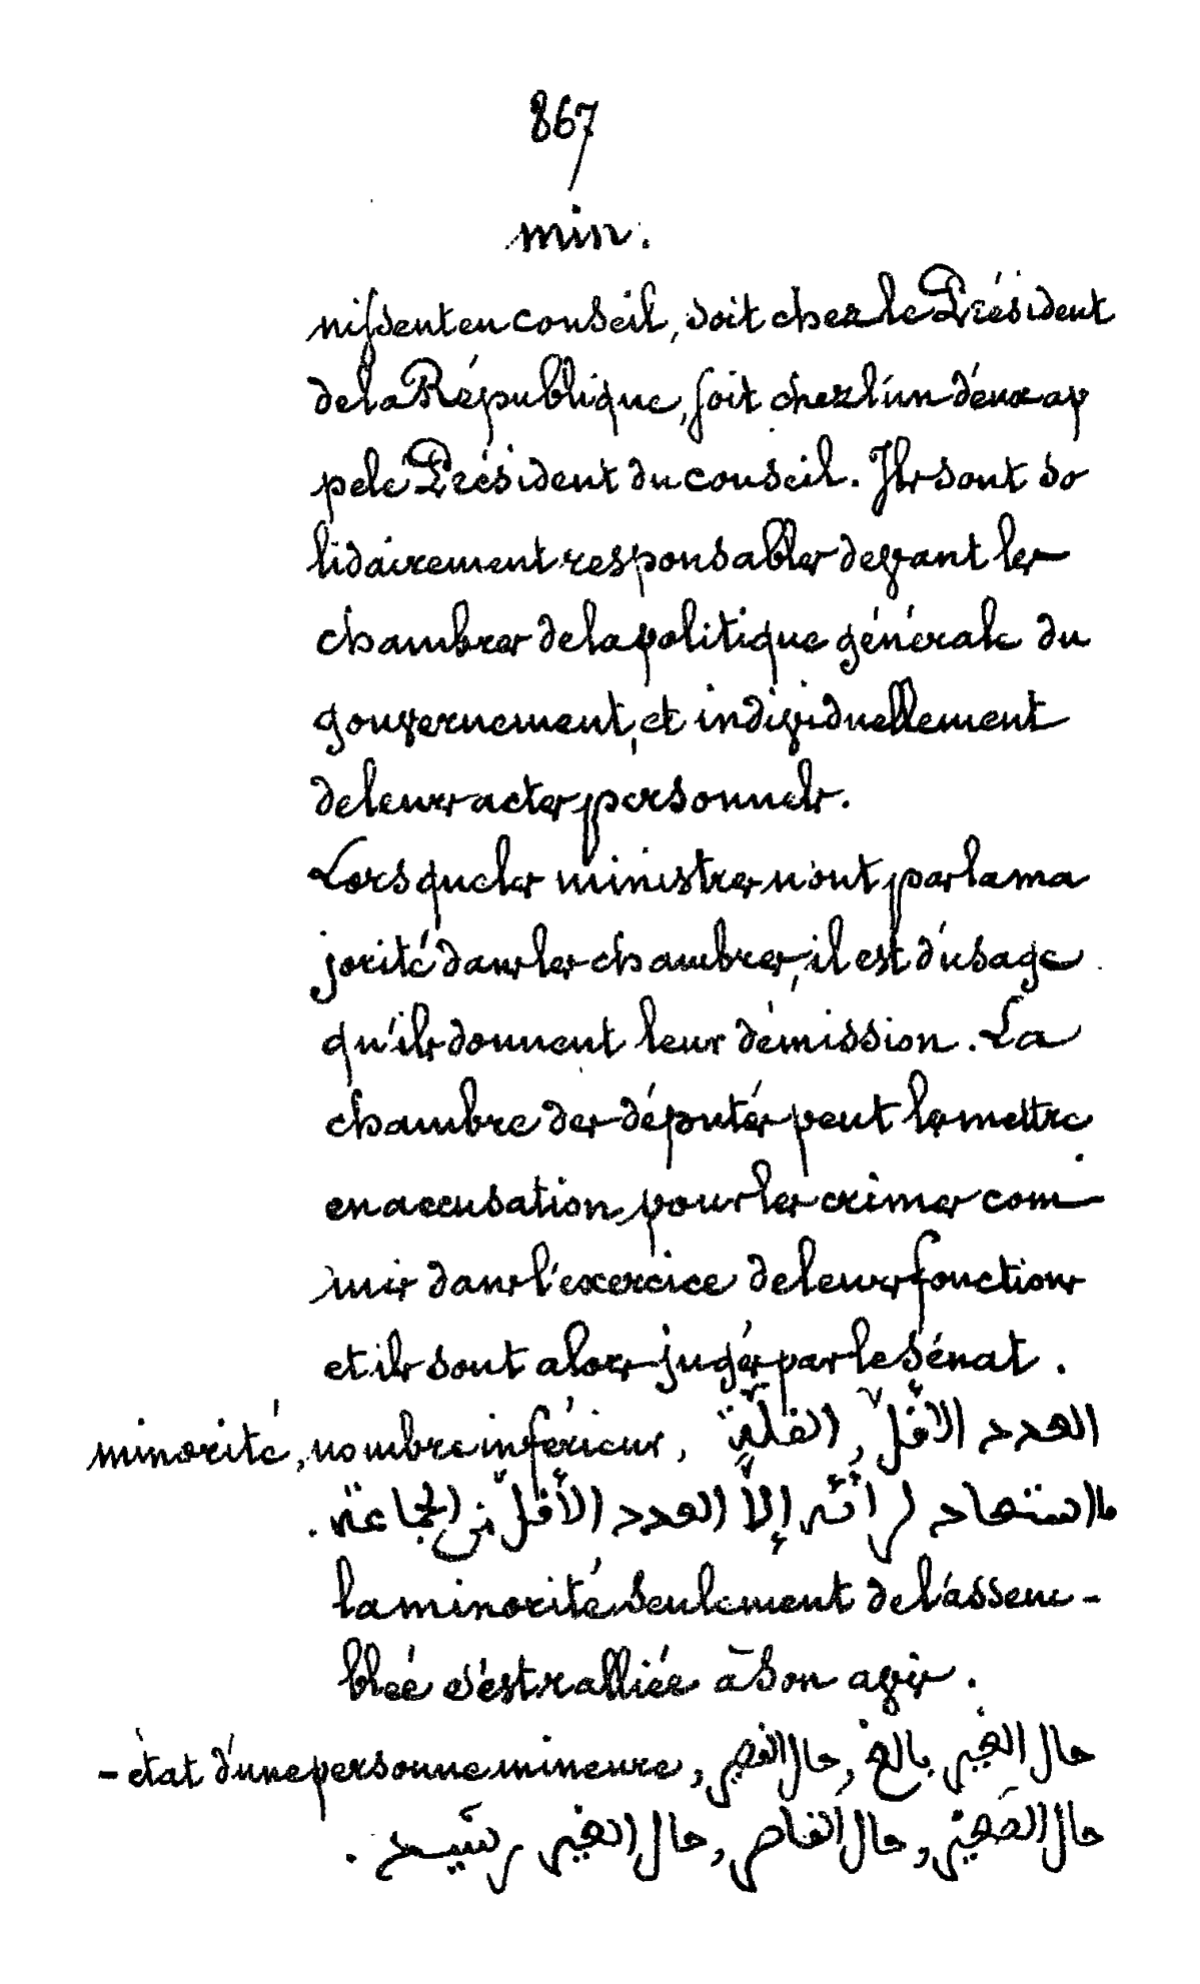 867
min.
nissent en conseil, soit chez le Président
de la République, soit chez l'un d'eux ap
pelé Président du conseil. Ils sont so
lidairement responsables devant les
chambres de la politique générale du
gouvernement, et individuellement
de leurs actes personnels.
Lorsque les ministres n'ont pas la ma
jorité dans les chambres, il est d'usage
qu'ils donnent leur démission. La
chambre des députés peut les mettre
en accusation pour les crimes com-
mis dans l'exercice de leurs fonctions
et ils sont alors jugés par le sénat.
minorité, nombre inférieur, العدد الاقلّ, القلّة
ما استصاد لرائه إلاّ العدد الأقلّ من الجماعة.
la minorité seulement de l'assem-
blée s'est ralliée à son avis.
- état d'une personne mineure, حال الغير بالغ, حال القصر
حال الصغير, حال القاصر, حال الغير رشيد.